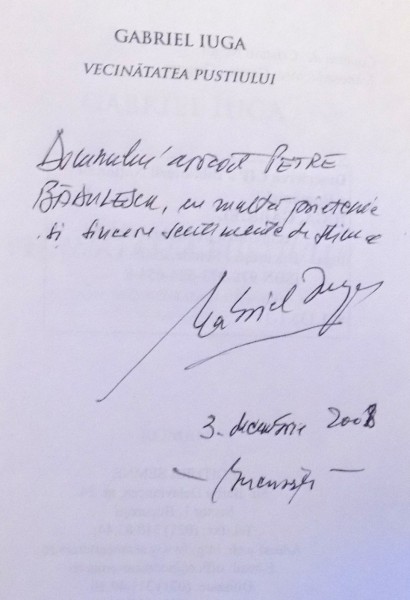 GABRIEL IUGA
VECINĂTATEA PUSTIULUI
Domnului avocat PETRE
BĂDULESCU, cu multă prietenie
și sincere sentimente de stimă
Gabriel Iuga
3. decembrie 2008
– București –